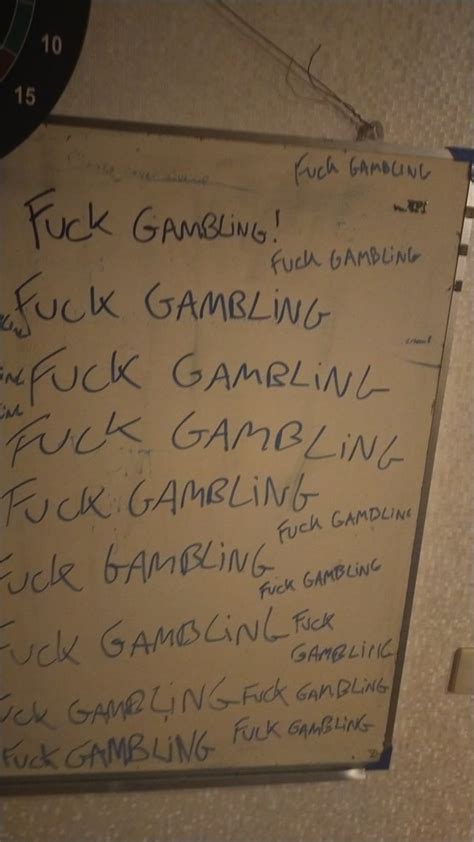 10
15
FUCK GAMBLING
FUCK GAMBLING!
FUCK GAMBLING
FUCK GAMBLING
FUCK GAMBLING
FUCK GAMBLING
FUCK GAMBLING
FUCK GAMBLING
FUCK GAMBLING
FUCK GAMBLING
FUCK GAMBLING
FUCK
GAMBLING
UCK GAMBLING
FUCK GAMBLING
FUCK GAMBLING
FUCK GAMBLING